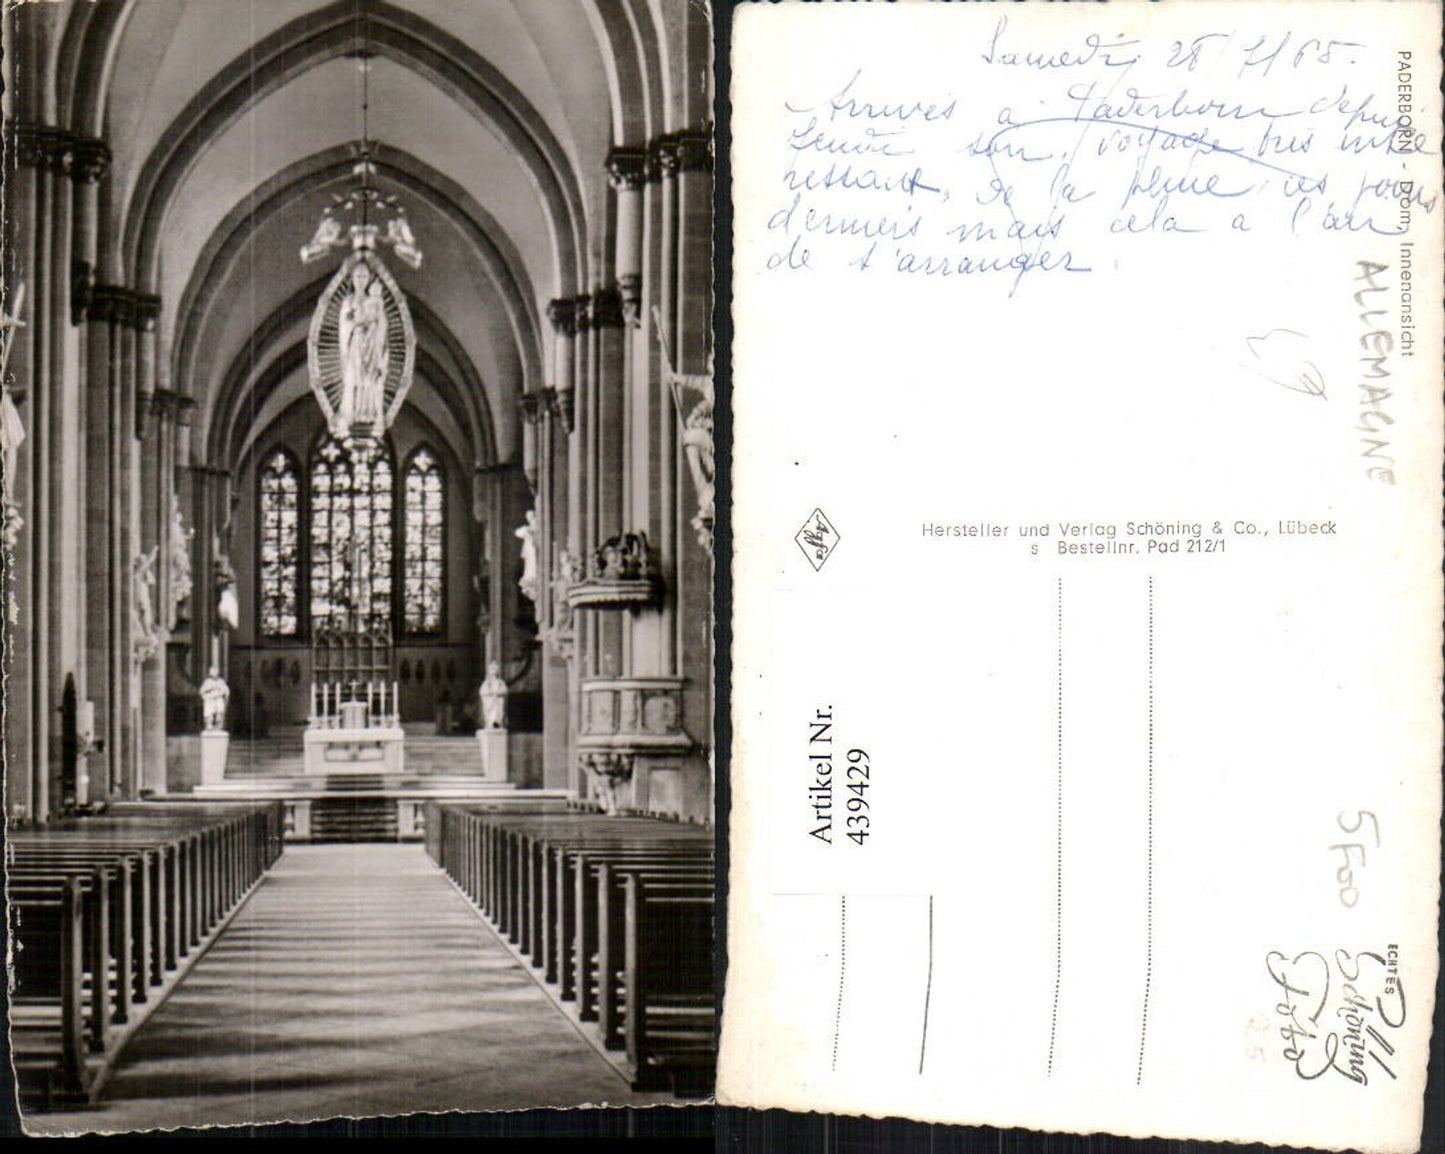 Samedi 28/7/65.
Arrivés à Paderborn depuis
lundi soir, voyage très inté
ressant, de la pluie ces jours
derniers mais cela a l'air
de s'arranger.
PADERBORN - Dom, Innenansicht
ALLEMAGNE
Agfa
Hersteller und Verlag Schöning & Co., Lübeck
s Bestellnr. Pad 212/1
Artikel Nr.
439429
5F00
ECHTES
Schöning
Foto
25